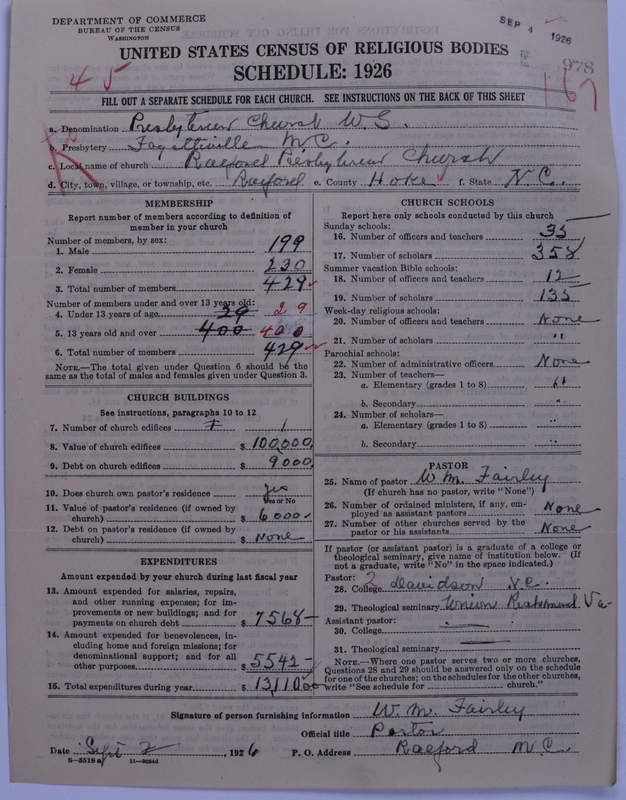 DEPARTMENT OF COMMERCE
BUREAU OF THE CENSUS
WASHINGTON
SEP 4 1926
978
UNITED STATES CENSUS OF RELIGIOUS BODIES
SCHEDULE: 1926
45
167
FILL OUT A SEPARATE SCHEDULE FOR EACH CHURCH. SEE INSTRUCTIONS ON THE BACK OF THIS SHEET
a. Denomination Presbyterian Church U.S.
b. Presbytery Fayetteville N.C.
c. Local name of church Raeford Presbyterian Church
d. City, town, village, or township, etc. Raeford e. County Hoke f. State N.C.
MEMBERSHIP
Report number of members according to definition of
member in your church
Number of members, by sex:
1. Male 199
2. Female 230
3. Total number of members 429
Number of members under and over 13 years old:
4. Under 13 years of age 29 29
5. 13 years old and over 400 400
6. Total number of members 429
NOTE.—The total given under Question 6 should be the
same as the total of males and females given under Question 3.
CHURCH BUILDINGS
See instructions, paragraphs 10 to 12
7. Number of church edifices 1 1
8. Value of church edifices $ 100,000
9. Debt on church edifices $ 9000
10. Does church own pastor's residence Yes
Yes or No
11. Value of pastor's residence (if owned by
church) $ 6000
12. Debt on pastor's residence (if owned by
church) $ None
EXPENDITURES
Amount expended by your church during last fiscal year
13. Amount expended for salaries, repairs,
and other running expenses; for im-
provements or new buildings; and for
payments on church debt $ 7568—
14. Amount expended for benevolences, in-
cluding home and foreign missions; for
denominational support; and for all
other purposes $ 5542—
15. Total expenditures during year $ 13,110
CHURCH SCHOOLS
Report here only schools conducted by this church
Sunday schools:
16. Number of officers and teachers 35
17. Number of scholars 358
Summer vacation Bible schools:
18. Number of officers and teachers 12
19. Number of scholars 135
Week-day religious schools:
20. Number of officers and teachers None
21. Number of scholars "
Parochial schools:
22. Number of administrative officers None
23. Number of teachers—
a. Elementary (grades 1 to 8) "
b. Secondary "
24. Number of scholars—
a. Elementary (grades 1 to 8) "
b. Secondary "
PASTOR
25. Name of pastor W M. Fairley
(If church has no pastor, write "None")
26. Number of ordained ministers, if any, em-
ployed as assistant pastors None
27. Number of other churches served by the
pastor or his assistants None
If pastor (or assistant pastor) is a graduate of a college or
theological seminary, give name of institution below. (If
not a graduate, write "No" in the space indicated.)
Pastor: 2
28. College Davidson N.C.
29. Theological seminary Union Richmond Va-
Assistant pastor:
30. College
31. Theological seminary
NOTE.—Where one pastor serves two or more churches,
Questions 28 and 29 should be answered only on the schedule
for one of the churches; on the schedules for the other churches,
write "See schedule for church."
Signature of person furnishing information W. M. Fairley
Official title Pastor
Date Sept 2, 1926 P. O. Address Raeford N.C.
8—5518a 11—9664d